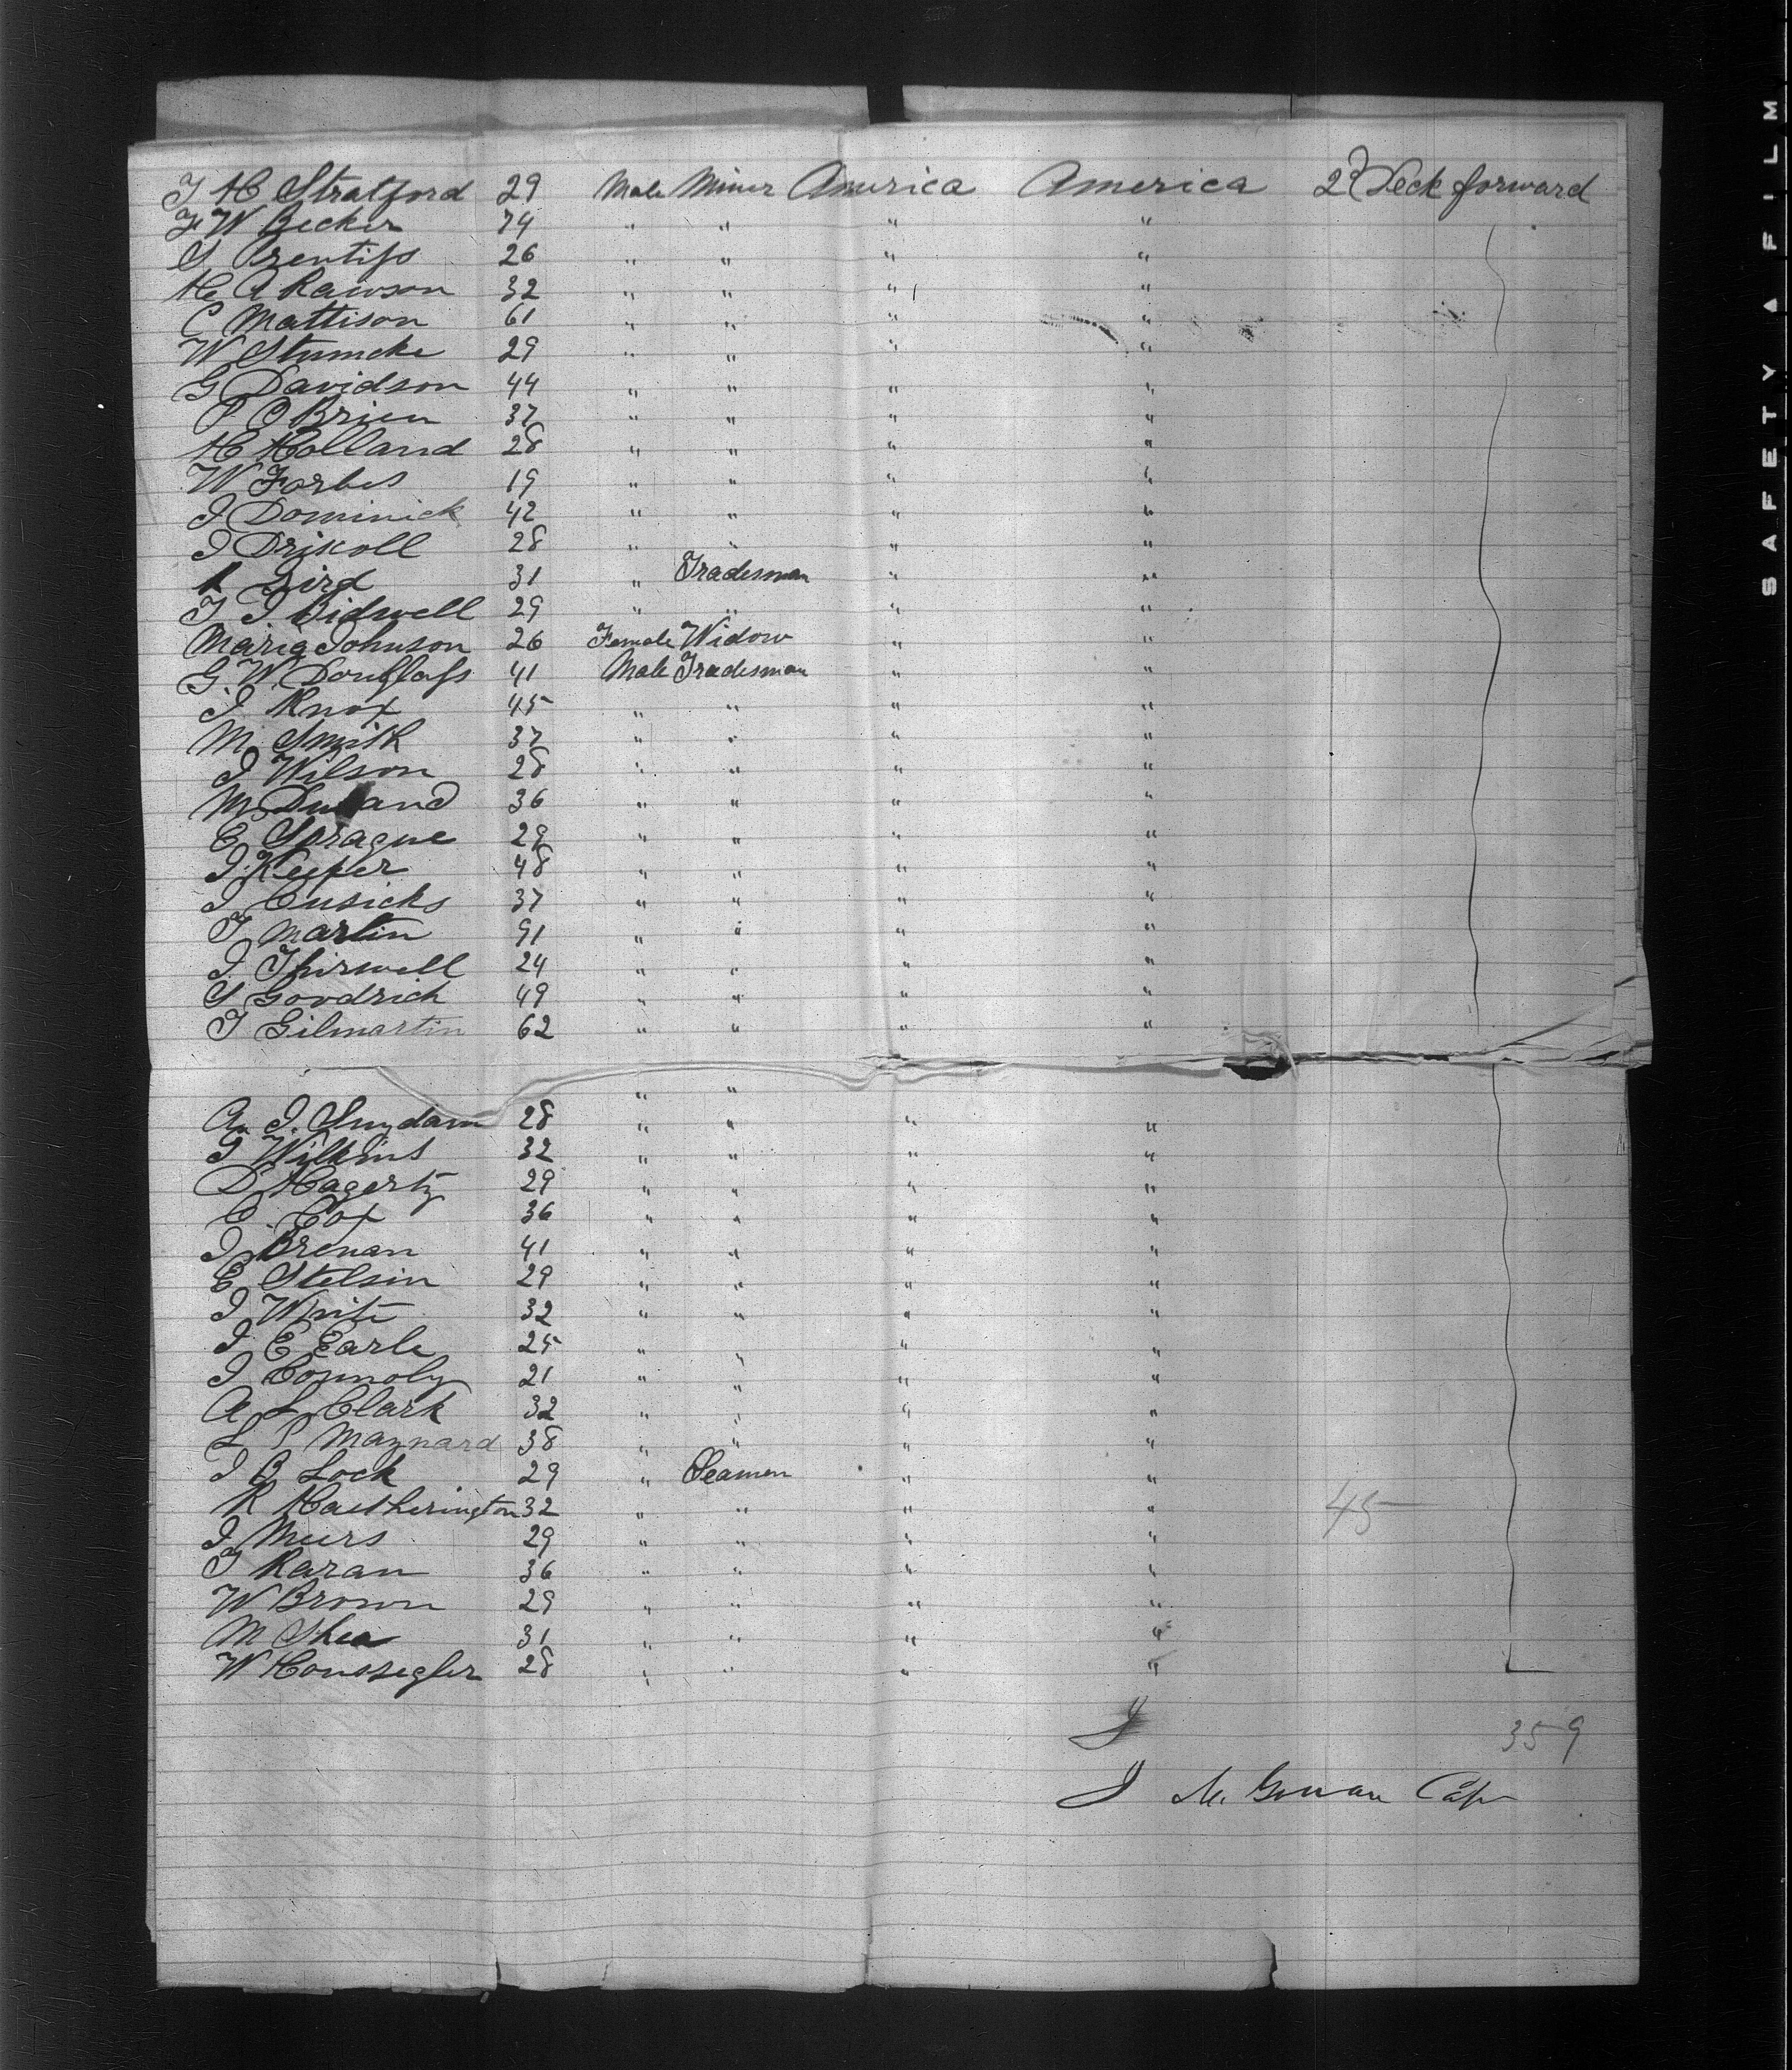 T H Stratford 29 Male Miner America America 2d Deck forward
F W Becker 74 " " " "
S Prentiss 26 " " " "
H A Rawson 32 " " " "
C Mattison 61 " " " "
W Stumcke 29 " " " "
G Davidson 44 " " " "
P O Brien 37 " " " "
H Holland 28 " " " "
W Forbes 19 " " " "
J Dominick 42 " " " "
J Driscoll 28 " " " "
31 " Tradesman " "
T J Bidwell 29 " " " "
Maria Johnson 26 Female Widow " "
G. W. Douglass 41 Male Tradesman " "
J Knox 45 " " " "
M Smith 37 " " " "
J Wilson 28 " " " "
M 36 " " " "
C Sprague 29 " " " "
J Keefer 48 " " " "
J Cusicks 37 " " " "
T Martin 91 " " " "
J Thirwell 24 " " " "
S Goodrich 49 " " " "
T Gilmartin 62 " " " "
" "
A. J. Suydam 28 " " " "
G Wilkins 32 " " " "
D Hagerty 29 " " " "
C. Cox 36 " " " "
J Brenan 41 " " " "
E Stelsin 29 " " " "
J White 32 " " " "
J E Earle 25 " " " "
J Connoly 21 " " " "
A L Clark 32 " " " "
L P Maynard 38 " " " "
J B Lock 29 " Seamen " "
R Haetherington 32 " " " " 45
J Meers 29 " " " "
T Karan 36 " " " "
W Brown 29 " " " "
M Shea 31 " " " "
W Houssegler 28 " " " "
J
359
J Mc Gowan Capt
SAFETY A FILM